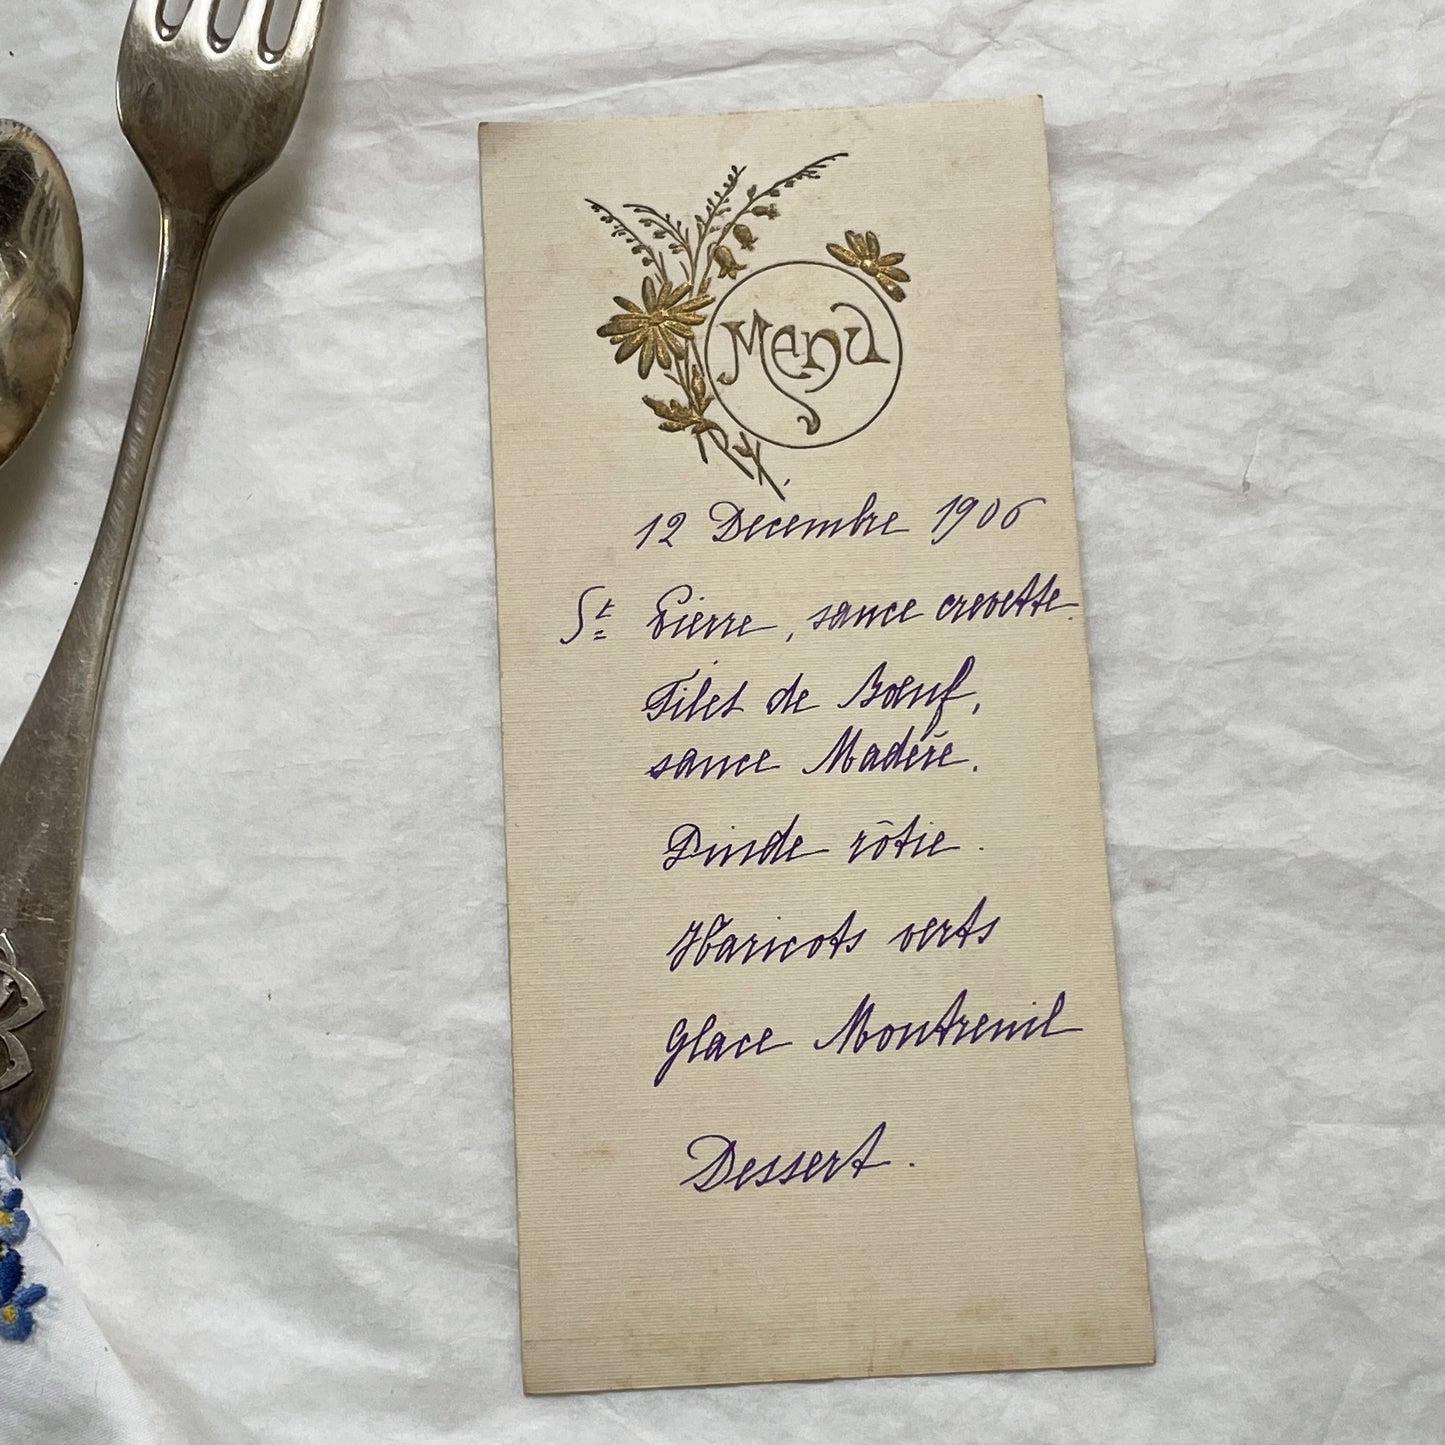 Menu
12 Décembre 1906
St Pierre, sauce crevette.
Filet de Bœuf,
sauce Madère.
Dinde rôtie.
Haricots verts
Glace Montreuil
Dessert.